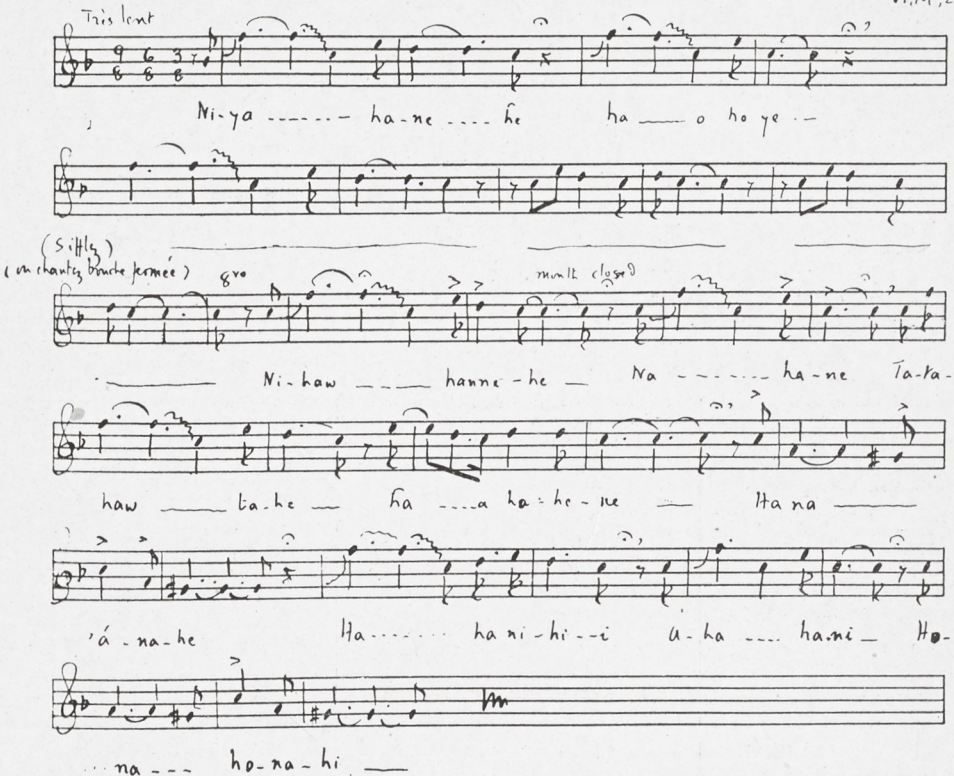 Très lent
9 6 3
8 8 8
Ni-ya ------- ha-ne .... he ha —— o ho ye .-
(Sifflez)
(ou chantez bouche fermée) 8vo mouth closed
Ni-haw ----- hanne-he — Na -------- ha-ne Ta-ra-
haw —— ta-he — ha ....a ha-he-ne — Ha na ——
'á-na-he Ha........ ha ni-hi--i U-ha .... ha.ni — Ho-
na --- ho-na-hi —